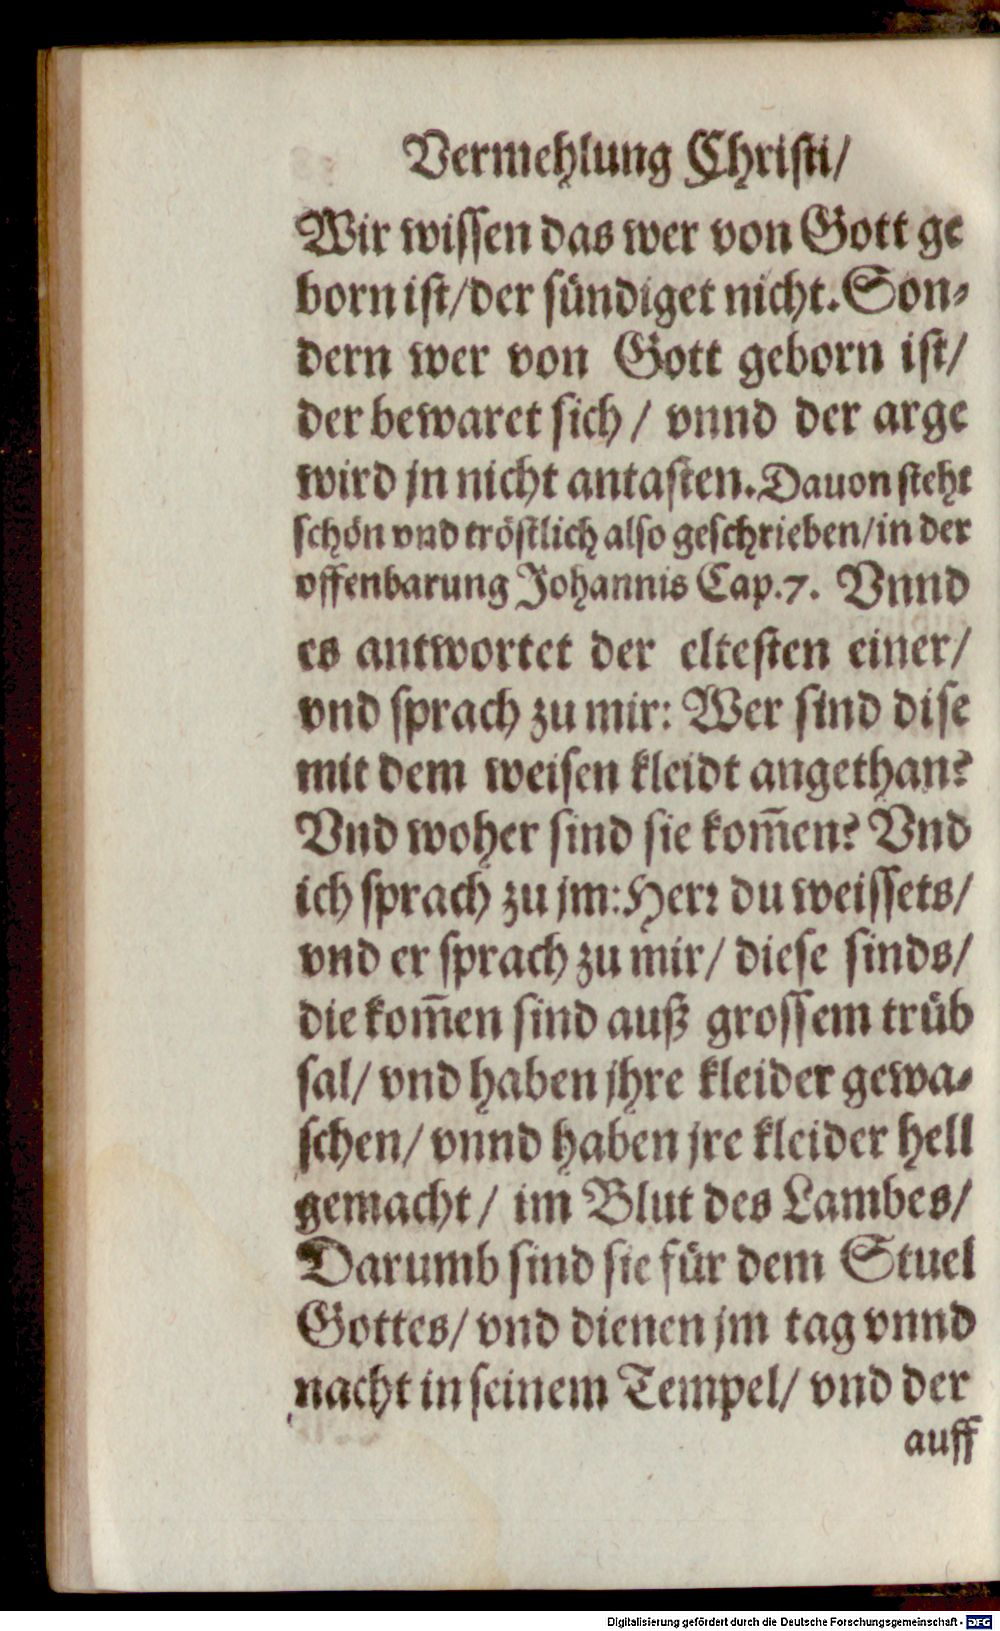 Vermehlung Christi/
Wir wissen das wer von Gott ge
born ist/der sündiget nicht. Son-
dern wer von Gott geborn ist/
der bewaret sich / vnnd der arge
wird jn nicht antasten. Dauon steht
schön vnd tröstlich also geschrieben/in der
offenbarung Johannis Cap.7. Vnnd
es antwortet der eltesten einer/
vnd sprach zu mir: Wer sind dise
mit dem weisen kleidt angethan?
Vnd woher sind sie kom̃en? Vnd
ich sprach zu jm: Herꝛ du weissets/
vnd er sprach zu mir/ diese sinds/
die kom̃en sind auß grossem trüb
sal/ vnd haben jhre kleider gewa-
schen/ vnnd haben jre kleider hell
gemacht/ im Blut des Lambes/
Darumb sind sie für dem Stuel
Gottes/ vnd dienen jm tag vnnd
nacht in seinem Tempel/ vnd der
auff
Digitalisierung gefördert durch die Deutsche Forschungsgemeinschaft - DFG